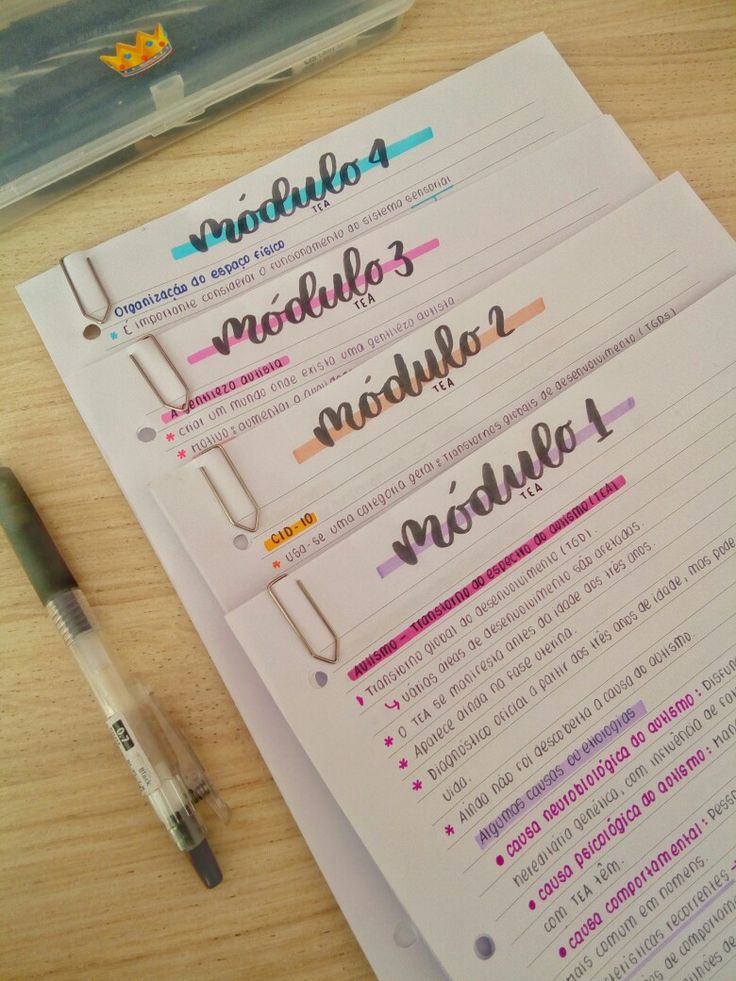 módulo 4
TEA
Organização do espaço físico
* É importante considerar o funcionamento do sistema sensorial
módulo 3
TEA
A gentileza autista
* Criar um mundo onde exista uma gentileza autista
* Motivo: aumentar a
módulo 2
TEA
CID-10
* Usa-se uma categoria geral: Transtornos globais de desenvolvimento (TGDs)
módulo 1
TEA
Autismo - Transtorno do espectro do autismo (TEA)
Transtorno global do desenvolvimento (TGD).
↳ várias áreas de desenvolvimento são afetadas.
* O TEA se manifesta antes da idade dos três anos.
* Aparece ainda na fase uterina.
* Diagnóstico oficial a partir dos três anos de idade, mas pode
vida.
* Ainda não foi descoberta a causa do autismo.
Algumas causas ou etiologias
• causa neurobiológica do autismo: Disfun
hereditária genética, com influência de fat
• causa psicológica do autismo: Man
• causa comportamental: Pesso
com TEA têm.
mais comum em homens.
terísticas recorrentes
s de comportame
0.7
Black